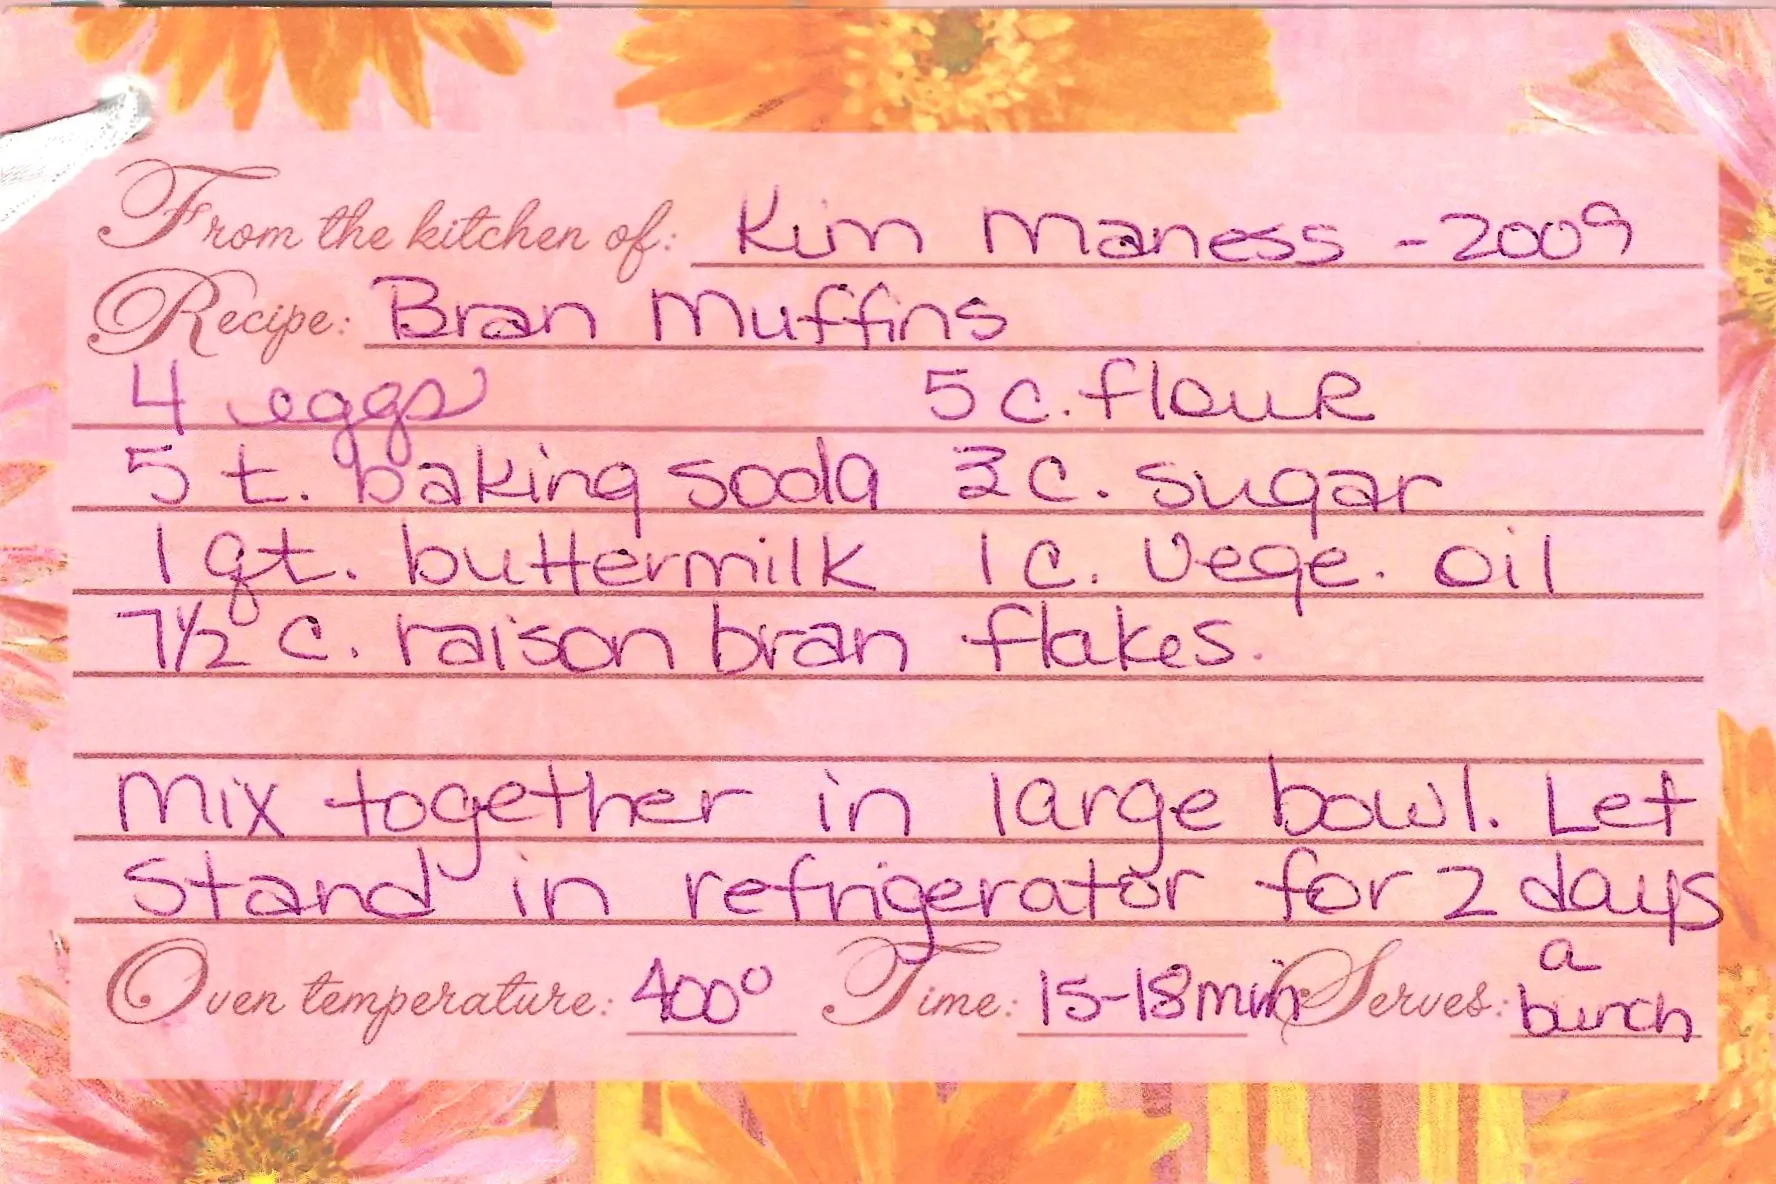 From the kitchen of: Kim Maness - 2009
Recipe: Bran Muffins
4 eggs 5 c. flour
5 t. baking soda 3 c. sugar
1 qt. buttermilk 1 c. vege. oil
7 1/2 c. raison bran flakes.
Mix together in large bowl. Let
stand in refrigerator for 2 days
Oven temperature: 400° Time: 15-18 min Serves: a bunch